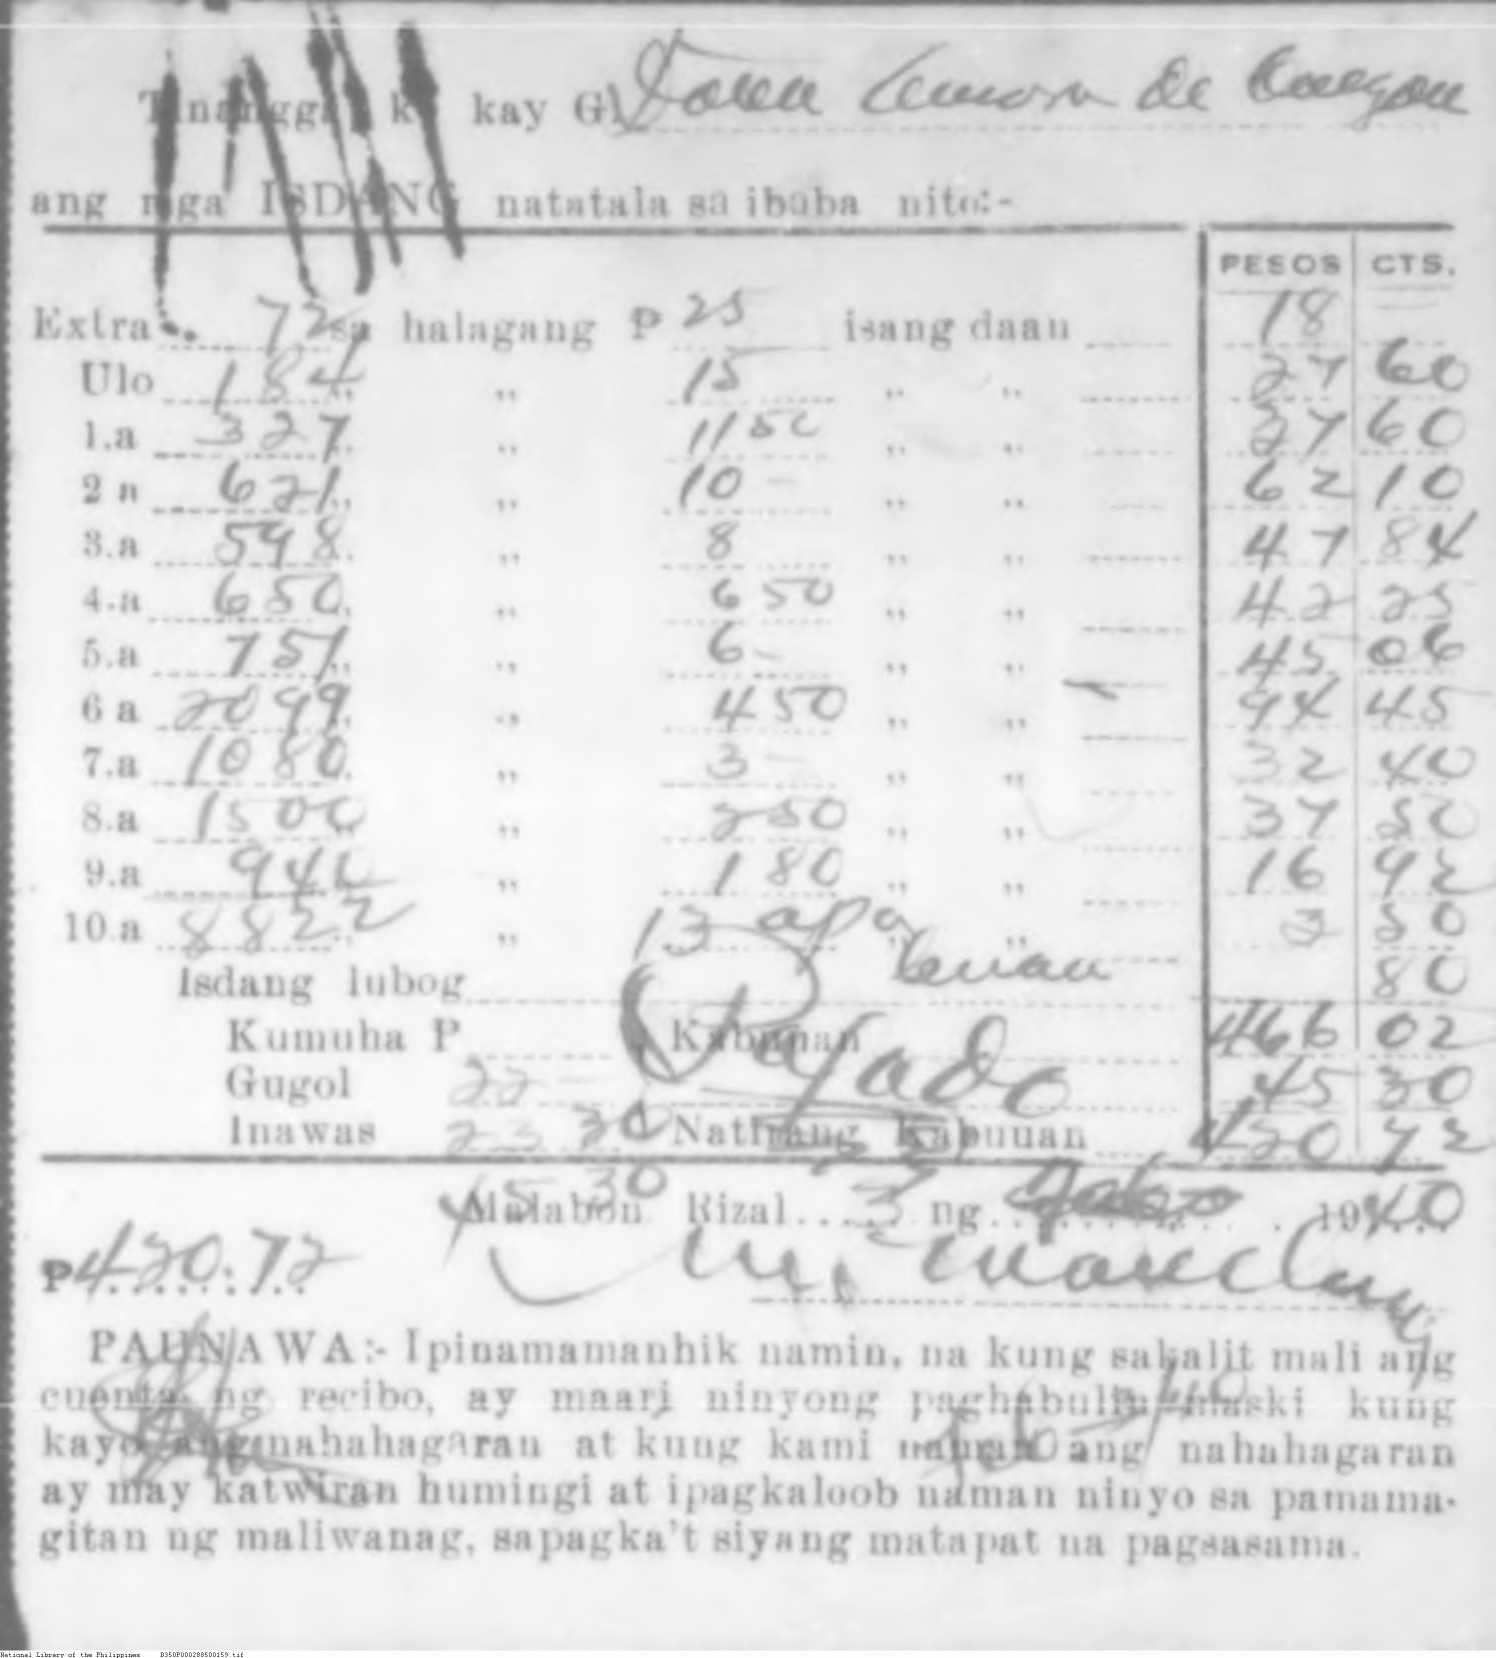 Tinanggap ko kay G. Aurora de Quezon
ang mga ISDANG natatala sa ibaba nito:-
PESOS CTS.
Extra 72 sa halagang P 25 isang daan 18
Ulo 184 „ 15 „ „ 27 60
1.a 327 „ 11 50 „ „ 37 60
2 a 621 „ 10 - „ „ 62 10
3.a 598 „ 8 „ „ 47 84
4.a 650 „ 6 50 „ „ 42 25
5.a 751 „ 6 - „ „ 45 06
6 a 2099 „ 4 50 „ „ 94 45
7.a 1080 „ 3 - „ „ 32 40
8.a 1500 „ 2 50 „ „ 37 50
9.a 940 „ 1 80 „ „ 16 92
10.a 8822 „ 13 „ „ 3 50
Isdang lubog 80
Kumuha P Kabuuan 466 02
Gugol 22 Pagado 45 30
Inawas 23 30 Natirang Kabuuan 420 72
45 30
Malabon Rizal 3 ng 1940
P 420.72
PAUNAWA:- Ipinamamanhik namin, na kung sakalit mali ang
cuenta ng recibo, ay maari ninyong paghabulin maski kung
kayo ang nahahagaran at kung kami naman ang nahahagaran
ay may katwiran humingi at ipagkaloob naman ninyo sa pamama-
gitan ng maliwanag, sapagka't siyang matapat na pagsasama.
National Library of the Philippines